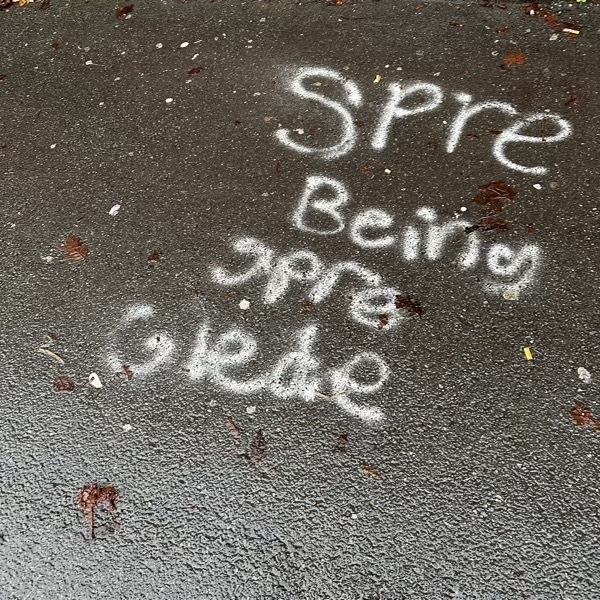 Spre
Being
spre
Glede